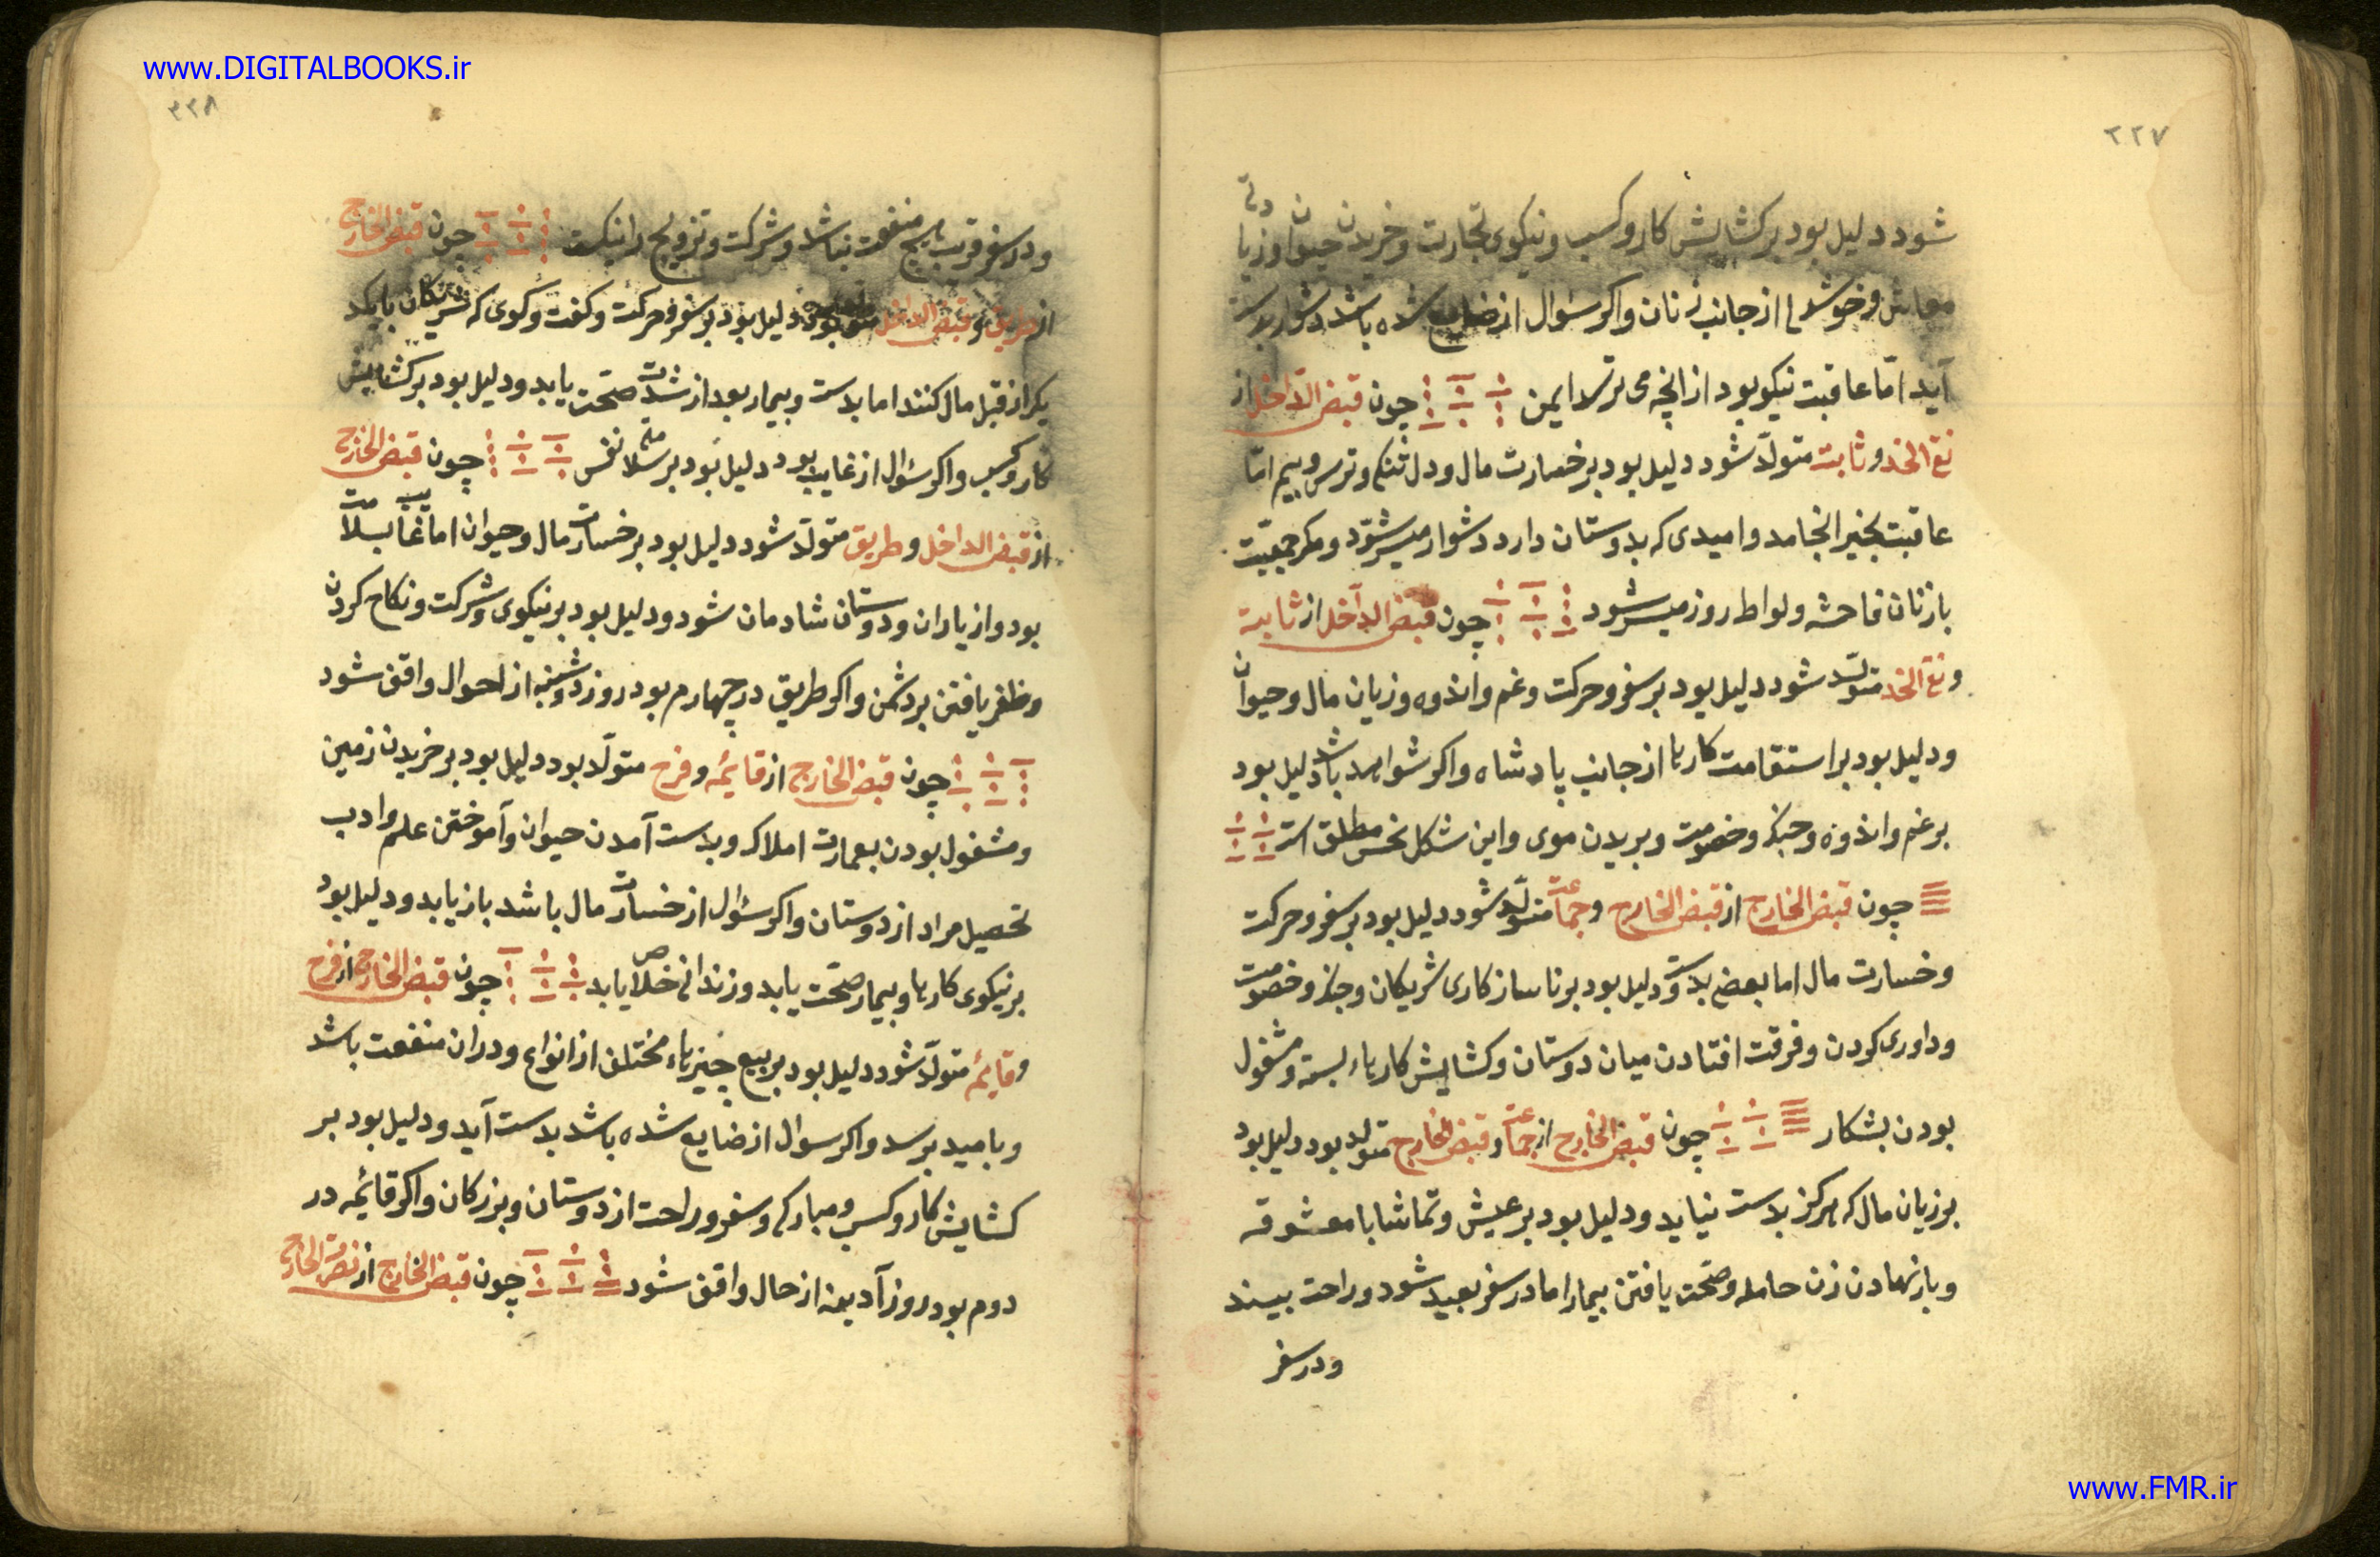 www.DIGITALBOOKS.ir
۲۲۷
شود دلیل بود بر کشایش کار و کسب و نیکوی تجارت و خریدن حیوان و زیادتی
معاش و خوشدلی از جانب زنان و اکر سؤال از ضایع شده باشد دشوار بدست
آید امّا عاقبت نیکو بود از انچه می ترسد ایمن چون قبض الداخل از
نقی الخد و ثابت متولّد شود دلیل بود بر خسارت مال و دل تنکی و ترس و بیم امّا
عاقبت بخیر انجامد و امیدی که بدوستان دارد دشوار میسر شود و مکر جمعیّت
با زنان فاحشه و لواط روز میسر شود چون قبض الداخل از ثابت
و نقی الخد متولّد شود دلیل بود بر سفر و حرکت و غم و اندوه و زیان مال و حیوان
و دلیل بود بر استقامت کارها از جانب پادشاه و اکر شواهد باشد دلیل بود
بر غم و اندوه و جنک و خصومت و بریدن موی و این شکل نحس مطلق است
چون قبض الخارج از قبض الخارج و جماعت متولّد شود دلیل بود بر سفر و حرکت
و خسارت مال اما بعضی بدست و دلیل بود بر ناسازکاری شریکان و جنک و خصومت
و داوری کردن و فرقت افتادن میان دوستان و کشایش کارهاء بسته و مشغول
بودن بشکار چون قبض الخارج از جماعت و قبض الخارج متولد بود دلیل بود
بر زیان مال که هرکز بدست نیاید و دلیل بود بر عیش و تماشا با معشوقه
و بار نهادن زن حامله و صحّت یافتن بیمار اما در سفر بعید شود و راحت بیند
و در سفر
۲۲۸
و در سفر قریب هیچ منفعت نباشد و شرکت و تزویج را نیکست چون قبض الخارج
از طریق و قبض الداخل متولد بود دلیل بود بر سفر و حرکت و کفت و کوی که شریکان با یکد
یکر از قبل مال کنند اما بدست و بیمار بعد از شدّت صحّت یابد و دلیل بود بر کشایش
کار و کسب و اکر سؤال از غایب بود دلیل بود بر سلامتی نفس چون قبض الخارج
از قبض الداخل و طریق متولّد شود دلیل بود بر خسارت مال و حیوان اما غایب بسلامت
بود و از یاران و دوستان شادمان شود و دلیل بود بر نیکوی و شرکت و نکاح کردن
و ظفر یافتن بر دشمن و اکر طریق در چهارم بود روز دوشنبه از احوال واقف شود
چون قبض الخارج از قایمه و فرح متولّد بود دلیل بود بر خریدن زمین
و مشغول بودن بعمارت املاک و بدست آمدن حیوان و آموختن علم و ادب
تحصیل مراد از دوستان و اکر سؤال از خسارت مال باشد باز یابد و دلیل بود
بر نیکوی کارها و بیمار صحّت یابد و زندانی خلاص یابد چون قبض الخارج از فرح
و قایمه متولّد شود دلیل بود بر بیع چیزهاء مختلف از انواع و دران منفعت باشد
و بامید برسد و اکر سوال از ضایع شده باشد بدست آید و دلیل بود بر
کشایش کار و کسب و مبارکی و سفر و راحت از دوستان و بزرکان و اکر قائمه در
دوم بود روز آدینه از حال واقف شود چون قبض الخارج از نصرت الخارج
www.FMR.ir